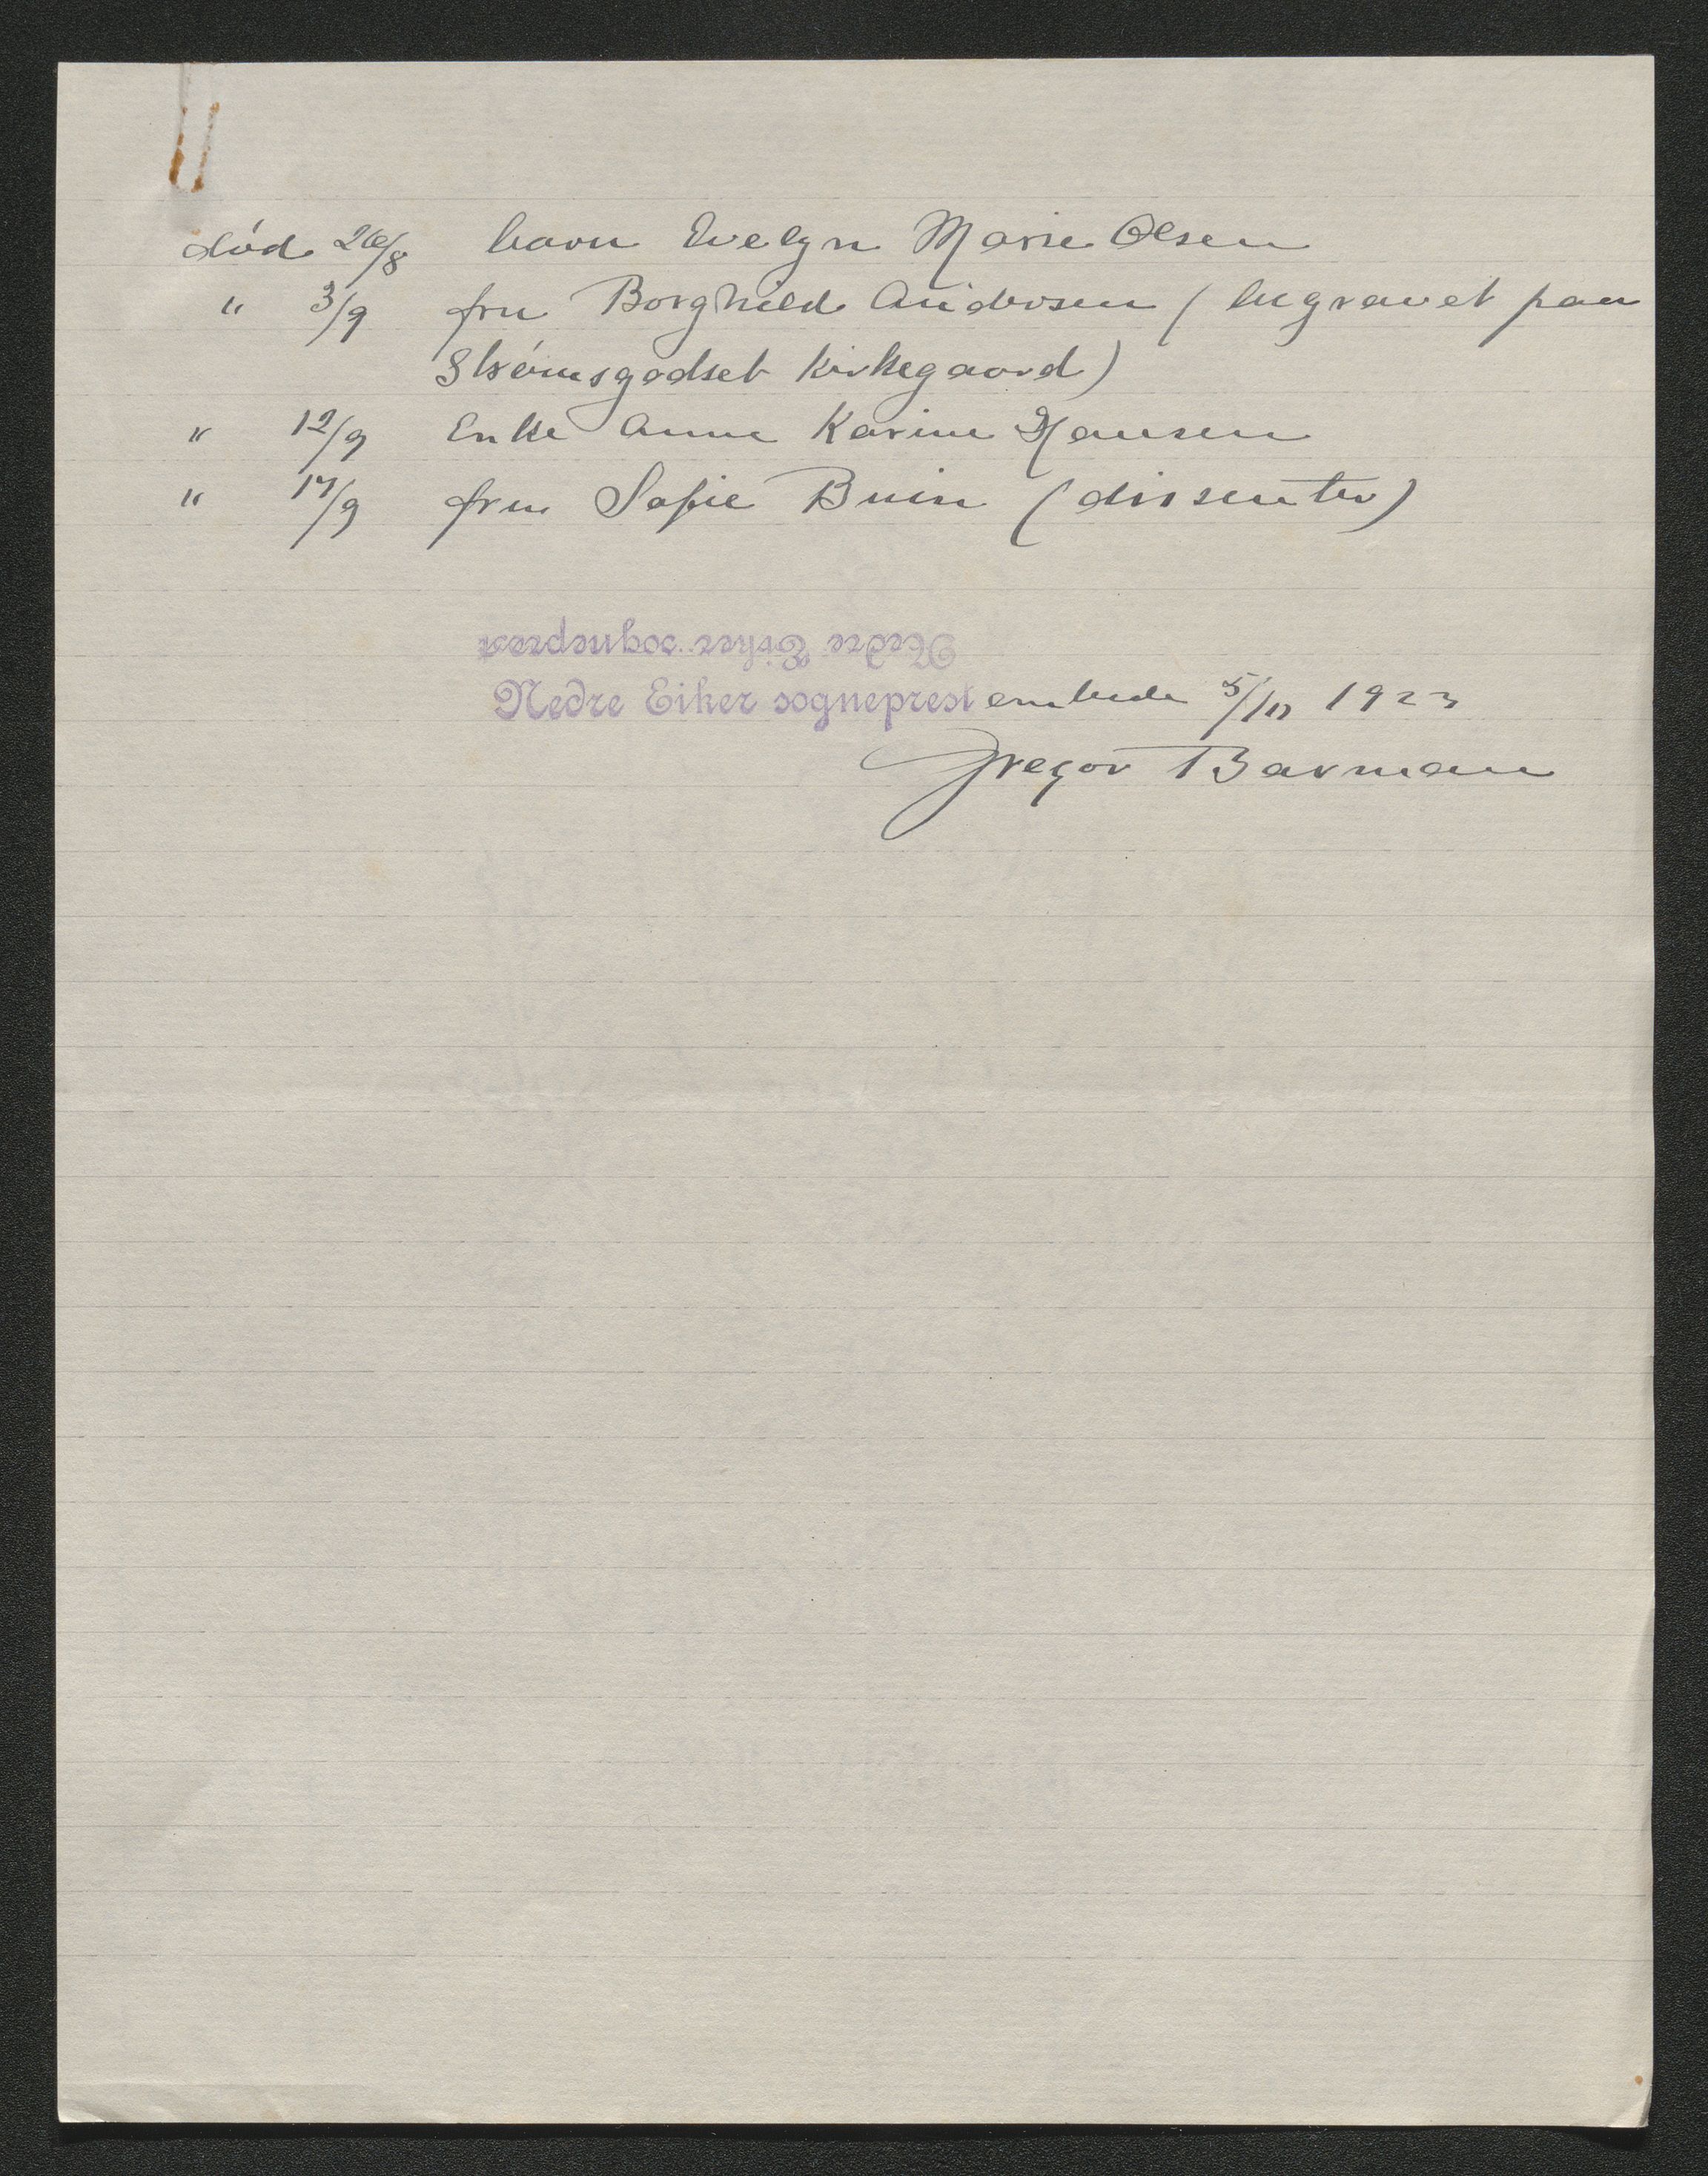 død 26/8 barn Evelyn Marie Olsen
" 3/9 fru Borghild Andersen (begravet paa
Strømsgodset kirkegaard)
" 12/9 Enke Anne Karine Hansen
" 17/9 fru Sofie Buin (dissenter)
Nedre Eiker sogneprest
Nedre Eiker sogneprest embede 5/10 1923
Gregor Barman